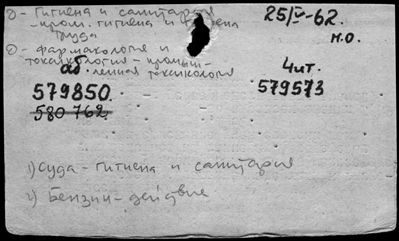 0 - Гигиена и санитария
- пром. гигиена и гигиена
труда
25/IV-62.
м.о.
0 - фармакология и
токсикология - промыш-
ленная токсикология
аб.
579850.
580762
Чит.
579573
1) Суда - гигиена и санитария
2) Бензин - действие